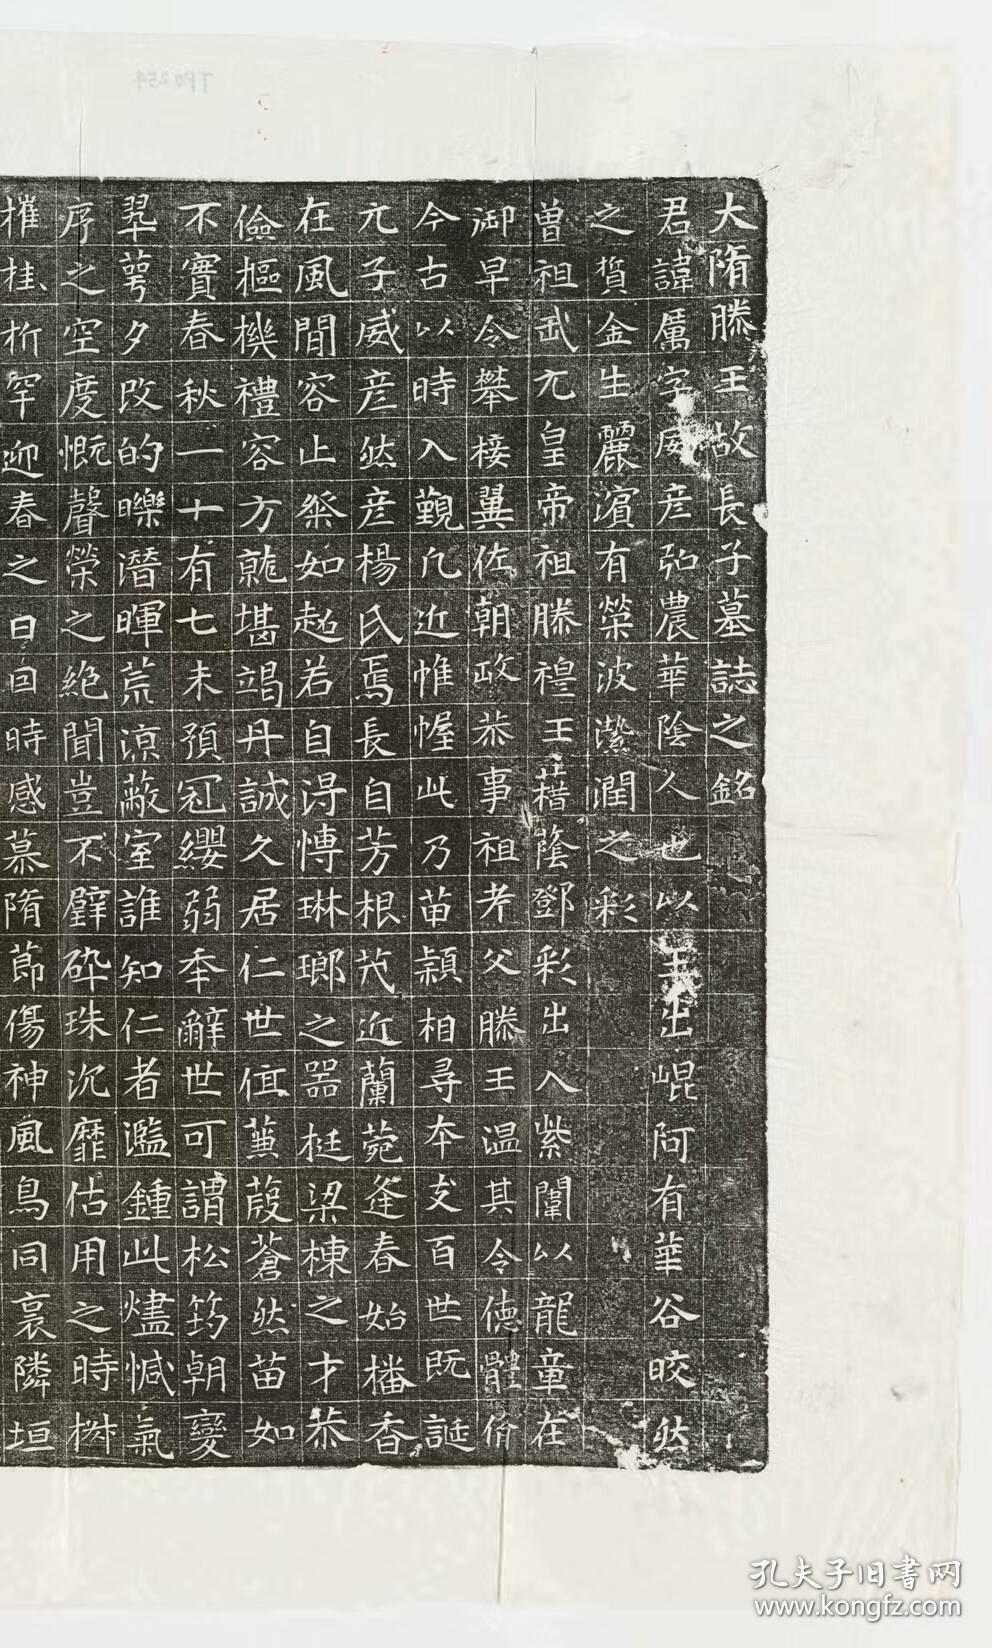 大隋滕王故長子墓誌之銘
君諱厲字威彦弘農華陰人也以玉出崐阿有華谷皎然
之質金生麗濱有榮波瀠潤之彩
曽祖武元皇帝祖滕穆王藉蔭鄧彩出入紫闈以龍童在
御早令攀接翼佐朝政恭事祖考父滕王温其令德體俻
今古以時入觀凡近帷幄此乃苗穎相尋夲支百世既誕
元子威彦然彦楊氏焉長自芳根茂近蘭菀逢春始播香
在風間容止粲如起若自淂慱琳瑯之器挺梁棟之才恭
儉樞機禮容方毓堪竭丹誠久居仁世值蒹葭蒼然苗如
不實春秋一十有七未預冠纓弱秊辭世可謂松筠朝變
翠萼夕改的皪潛暉荒涼蔽室誰知仁者濫鍾此燼慽氣
序之空度慨聲榮之絶聞豈不璧砕珠沉靡估用之時桝
摧桂析罕迎春之日回時感慕隋節傷神風鳥同裏隣垣
TP0254
孔夫子旧書网
www.kongfz.com